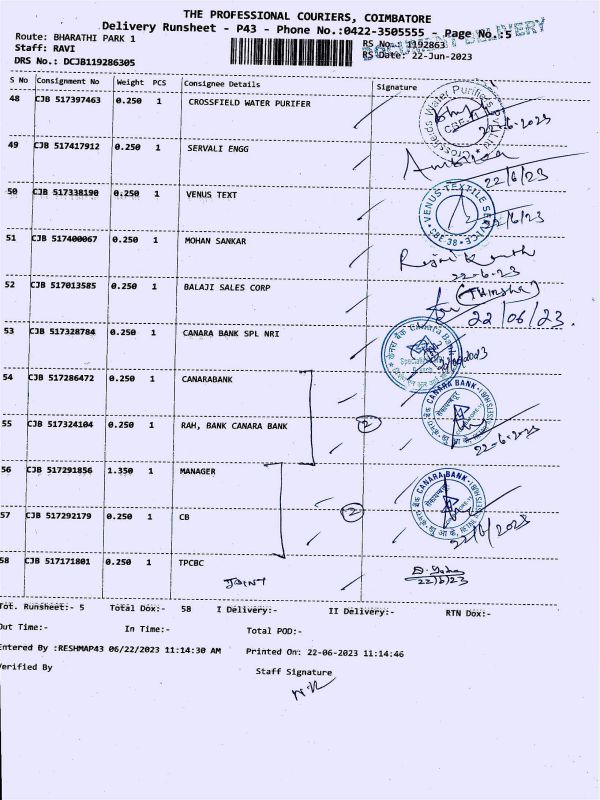 THE PROFESSIONAL COURIERS, COIMBATORE
Delivery Runsheet - P43 - Phone No.:0422-3505555 - Page No.:5
Route: BHARATHI PARK 1
RS No.: 1192863
Staff: RAVI
RS Date: 22-Jun-2023
DRS No.: DCJB119286305
DELIVERY
S No Consignment No Weight PCS Consignee Details Signature
48 CJB 517397463 0.250 1 CROSSFIELD WATER PURIFER
22-6-2023
49 CJB 517417912 0.250 1 SERVALI ENGG
22/6/23
50 CJB 517338190 0.250 1 VENUS TEXT
VENUS TEXTILE SERVICE
CBE-38
22/6/23
51 CJB 517400067 0.250 1 MOHAN SANKAR
22-6-23
52 CJB 517013585 0.250 1 BALAJI SALES CORP
22/06/23.
53 CJB 517328784 0.250 1 CANARA BANK SPL NRI
केनरा बैंक Canara Bank
54 CJB 517286472 0.250 1 CANARABANK
CANARA BANK
55 CJB 517324104 0.250 1 RAH, BANK CANARA BANK
2
22-6-2023
56 CJB 517291856 1.350 1 MANAGER
CANARA BANK
2
57 CJB 517292179 0.250 1 CB
22/6/2023
58 CJB 517171801 0.250 1 TPCBC
JOINT
22/6/23
Tot. Runsheet:- 5 Total Dox:- 58 I Delivery:- II Delivery:- RTN Dox:-
Out Time:- In Time:- Total POD:-
Entered By :RESHMAP43 06/22/2023 11:14:30 AM Printed On: 22-06-2023 11:14:46
Verified By Staff Signature